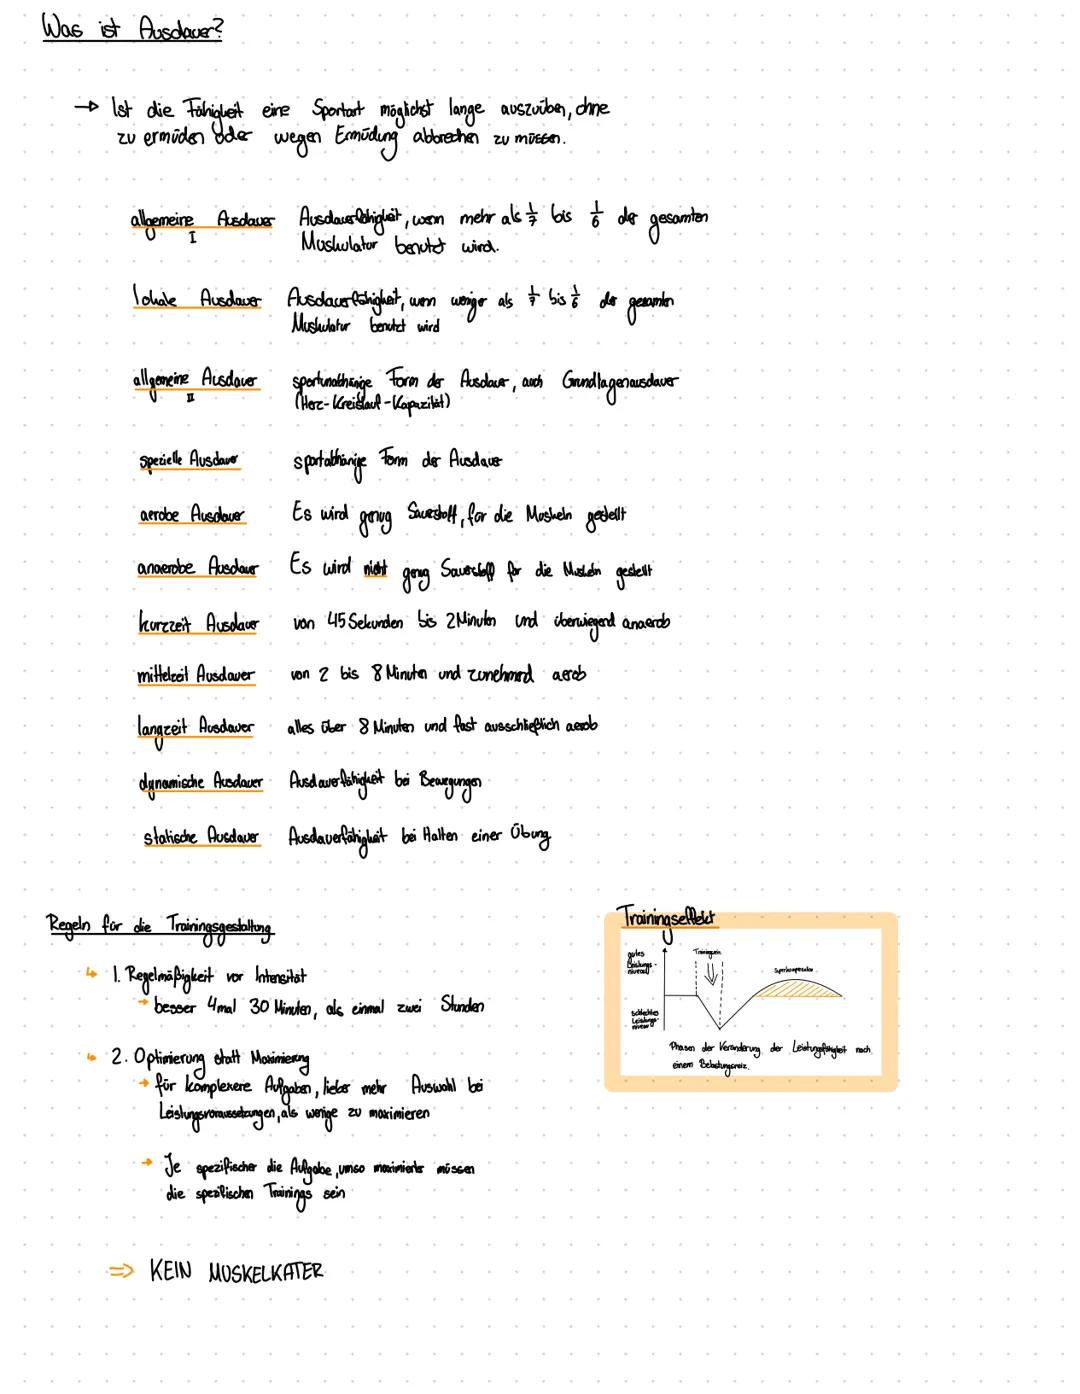 Was ist Ausdauer?
→ Ist die Fähigkeit eine Sportart möglichst lange auszuüben, ohne
zu ermüden oder wegen Ermüdung abbrechen zu müssen.
allgemeine Ausdauer I Ausdauerfähigkeit, wenn mehr als 1/7 bis 1/6 der gesamten
Muskulatur benutzt wird.
lokale Ausdauer Ausdauerfähigkeit, wenn weniger als 1/7 bis 1/6 der gesamten
Muskulatur benutzt wird
allgemeine Ausdauer II sportunabhänige Form der Ausdauer, auch Grundlagenausdauer
(Herz-Kreislauf-Kapazität)
spezielle Ausdauer sportabhänige Form der Ausdauer
aerobe Ausdauer Es wird genug Sauerstoff, für die Muskeln gestellt
anaerobe Ausdauer Es wird nicht genug Sauerstoff für die Muskeln gestellt
kurzzeit Ausdauer von 45 Sekunden bis 2 Minuten und überwiegend anaerob
mittelzeit Ausdauer von 2 bis 8 Minuten und zunehmend aerob
langzeit Ausdauer alles über 8 Minuten und fast ausschließlich aerob
dynamische Ausdauer Ausdauerfähigkeit bei Bewegungen
statische Ausdauer Ausdauerfähigkeit bei Halten einer Übung
Regeln für die Trainingsgestaltung
↳ 1. Regelmäßigkeit vor Intensität
→ besser 4mal 30 Minuten, als einmal zwei Stunden
↳ 2. Optimierung statt Maximierung
→ für komplexere Aufgaben, lieber mehr Auswahl bei
Leistungsvoraussetzungen, als wenige zu maximieren
→ Je spezifischer die Aufgabe, umso maximierter müssen
die spezifischen Trainings sein
⇒ KEIN MUSKELKATER
Trainingseffekt
gutes
Leistungs-
niveau
schlechtes
Leistungs-
niveau
Phasen der Veränderung der Leistungsfähigkeit nach
einem Belastungsreiz.